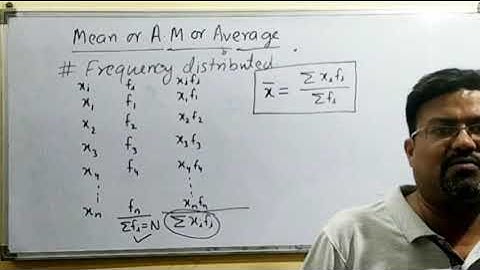 Mean or A.M or Average
# Frequency distributed
xᵢ fᵢ xᵢfᵢ
x₁ f₁ x₁f₁
x₂ f₂ x₂f₂
x₃ f₃ x₃f₃
x₄ f₄ x₄f₄
⋮ ⋮
xₙ fₙ xₙfₙ
Σfᵢ=N ✓ Σxᵢfᵢ
x̄ = Σxᵢfᵢ / Σfᵢ